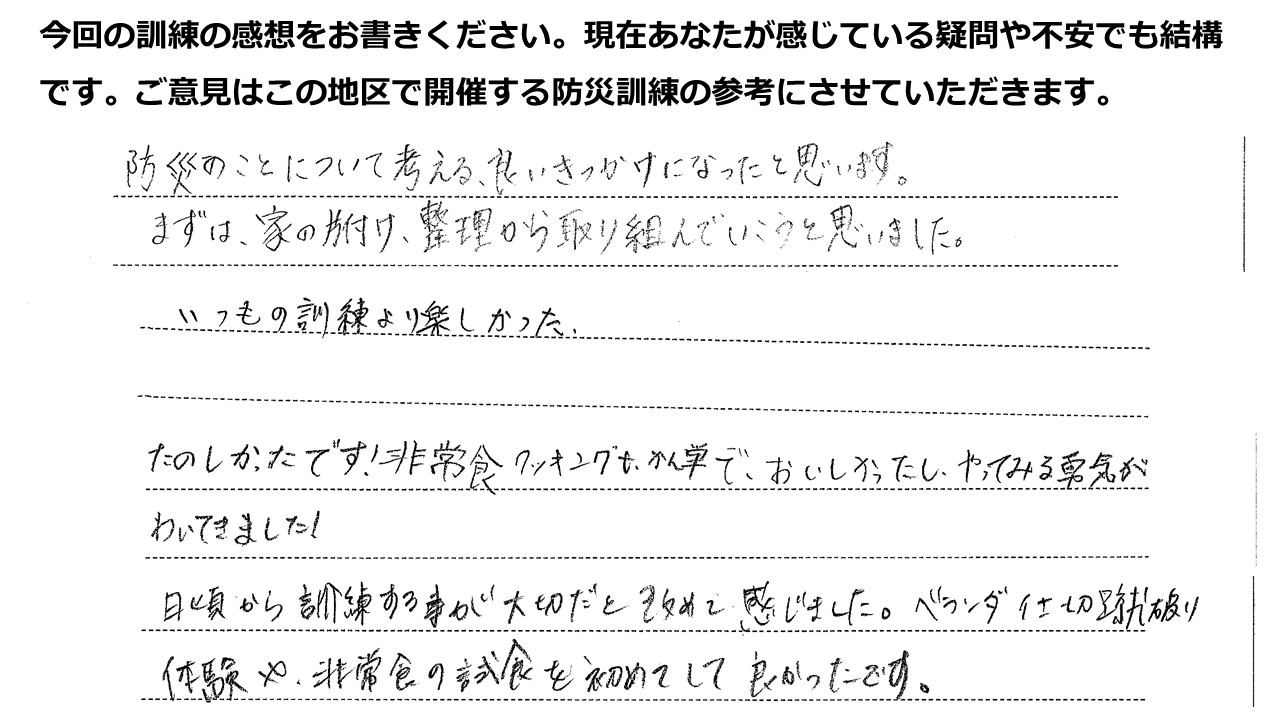 今回の訓練の感想をお書きください。現在あなたが感じている疑問や不安でも結構
です。ご意見はこの地区で開催する防災訓練の参考にさせていただきます。
防災のことについて考える、良いきっかけになったと思います。
まずは、家の片付け、整理から取り組んでいこうと思いました。
いつもの訓練より楽しかった.
たのしかったです!非常食クッキングも、かん単で、おいしかったし、やってみる勇気が
わいてきました!
日頃から訓練する事が大切だと改めて感じました。ベランダ仕切蹴破り
体験や、非常食の試食を初めてして良かったです。